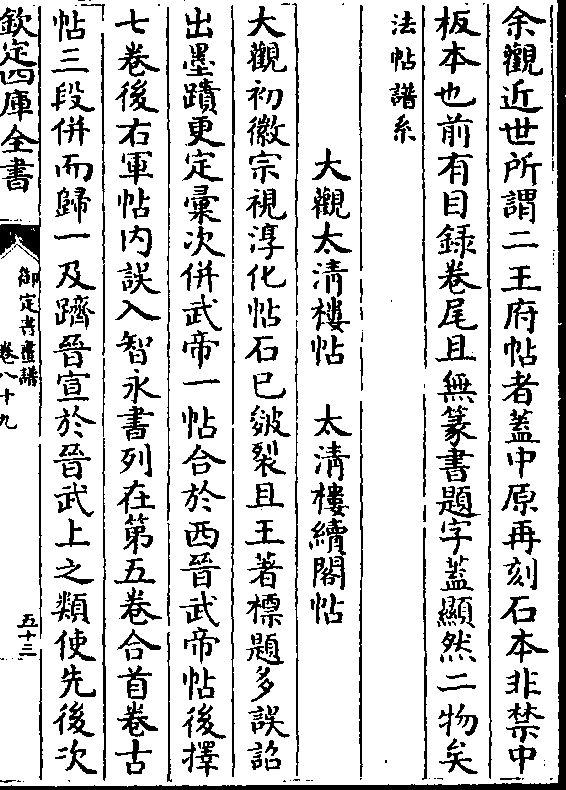 余觀近世所謂二王府帖者蓋中原再刻石本非禁中
板本也前有目錄卷尾且無篆書題字蓋顯然二物矣
法帖譜系
大觀太清樓帖 太清樓續閣帖
大觀初徽宗視淳化帖石已皴裂且王著標題多誤詔
出墨蹟更定彙次併武帝一帖合於西晉武帝帖後擇
七卷後右軍帖內誤入智永書列在第五卷合首卷古
帖三段併而歸一及躋晉宣於晉武上之類使先後次
欽定四庫全書
御定書畫譜
卷八十九
五十三